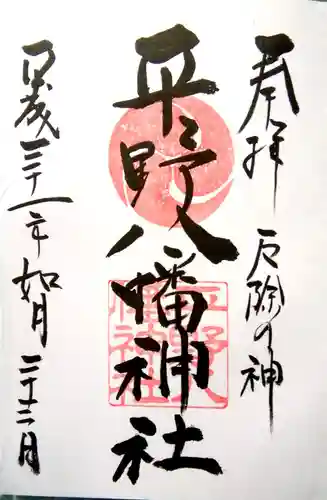 奉拝 厄除の神
平野八幡神社
平成三十一年如月二十二日
平野八
幡神社